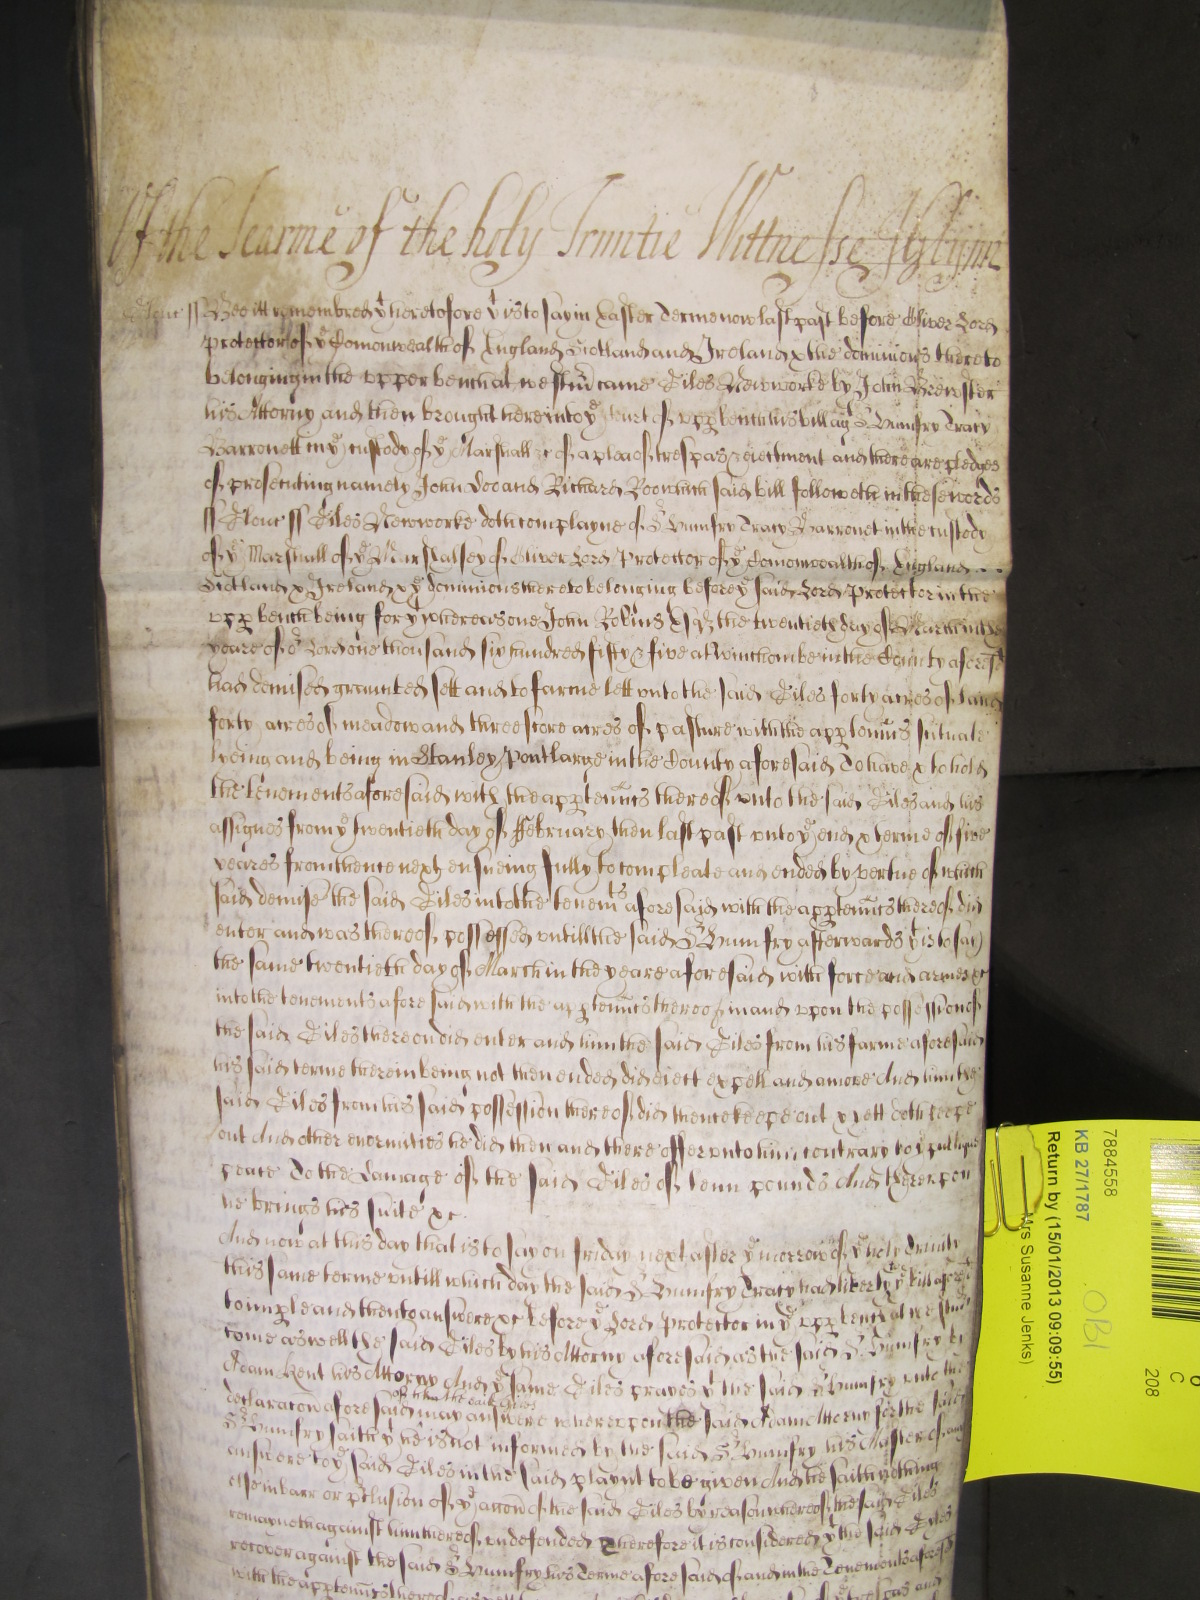 Of the Tearme of the holy Trinitie Wittnesse Glynn
Glouc ss Bee itt remembred yt heretofore yt is to say in Easter Terme now last past before Oliver Lord
Protector of ye Comonwealth of England Scotland and Ireland & the dominions thereto
belonging in the upper bench at Westmr came Giles Newworke by John Brewster
his Attorny and then brought here into ye Court of upp bench his bill agt Sr Humfry Tracy
Barronett in ye custody of ye Marshall &c of a plea of trespas & eiectment and there are pledges
of prosecuting namely John Doo and Richard Roo which said bill followeth in these words
ss Glouc ss Giles Newworke doth complayne of Sr Humfry Tracy Barronet in the custody
of ye Marshall of ye Marshalsey of Oliver Lord Protector of ye Comonwealth of England
Scotland & Ireland & ye dominions thereto belonging before ye said Lord Protector in the
upp bench being for yt whereas one John Robins Esqr the twentieth day of March in the
yeare of or Lord one thousand six hundred fifty & five at Winchombe in the County aforesd
had demised graunted sett and to farme lett unto the said Giles forty acres of land
forty acres of meadow and threescore acres of pasture with the apptenncs scituate
lyeing and being in Stanley Pontlarge in the County aforesaid To have & to hold
the tenements aforesaid with the apptenncs thereof unto the said Giles and his
assignes from ye twentieth day of February then last past unto ye end & terme of five
yeares from thence next ensueing fully to compleate and ended by vertue of which
said demise the said Giles into the tenemts aforesaid with the apptenncs thereof did
enter and was thereof possessed untill the said Sr Humfry afterwards yt is to say
the same twentieth day of March in the yeare aforesaid with force and armes &c
into the tenements aforesaid with the apptenncs thereof in and upon the possession of
the said Giles thereon did enter and him the said Giles from his farme aforesaid
his said terme therein being not then ended did eiect expell and amove And him the
said Giles from his said possession thereof did thence keepe out & yett doth keepe
out And other enormities he did then and there offer unto him contrary to ye publique
peace To the Damage of the said Giles of tenn pounds And thereupon
he brings his suite &c
And now at this day that is to say on friday next after ye morrow of ye holy Trinity
this same terme untill which day the said Sr Humfry Tracy had liberty to ye bill aforesd
to imple and then to answere &c before ye Lord Protector in ye upp bench at Westmr
come as well the said Giles by his Attorny aforesaid as the said Sr Humfry by
Adam Kent his Attorny And ye same Giles prayes yt the said Sr Humfry unto the
declaracon aforesaid of him the said Giles may answere whereupon the said Adam Attorny for the said
Sr Humfry saith yt he is not informed by the said Sr Humfry his Master of any
answere to ye said Giles in the said playnt to be given And he saith nothing
else in barr or p'clusion of ye accon of the said Giles by reason whereof the said Giles
remayneth against him thereof undefended Therefore it is considered yt the said Gyles
recover against the said Sr Humfry his Terme aforesaid of and in the Tenements aforesd
with the apptenncs thereof
7884558
KB 27/1787
Return by (15/01/2013 09:09:55)
Mrs Susanne Jenks)
OBI
C
208